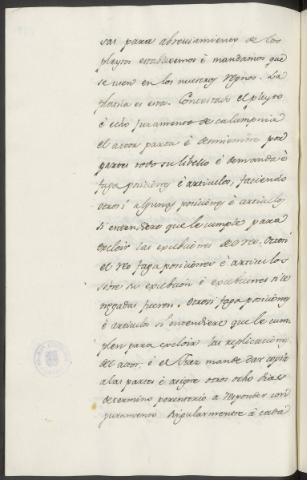 sas para abreviamiento de los
pleytos establecemos è mandamos que
se usen en los nuestros Regnos. La
platica es esta. Contestado el pleyto
è echo juramento de calumpnia
el actor parta è desmiembre por
partes todo su libello è demanda è
faga posiciónes è articulos, faciendo
otrosi algunas posiciónes è articulos
si entendiere que le cumple para
excloir las excebciónes del reo. Otrosi
el reo faga posiciónes è articulos
sobre su excebcion è excebciones si le
negadas fueren. Otrosi faga posiciónes
è articulos si entendiere que le cum
plen para excloir las replicaciónes
del actor: è el Juez mande dar copia
a las partes è asigne otros ocho dias
de termino perentorio a responder con
juramento singularmente à cada